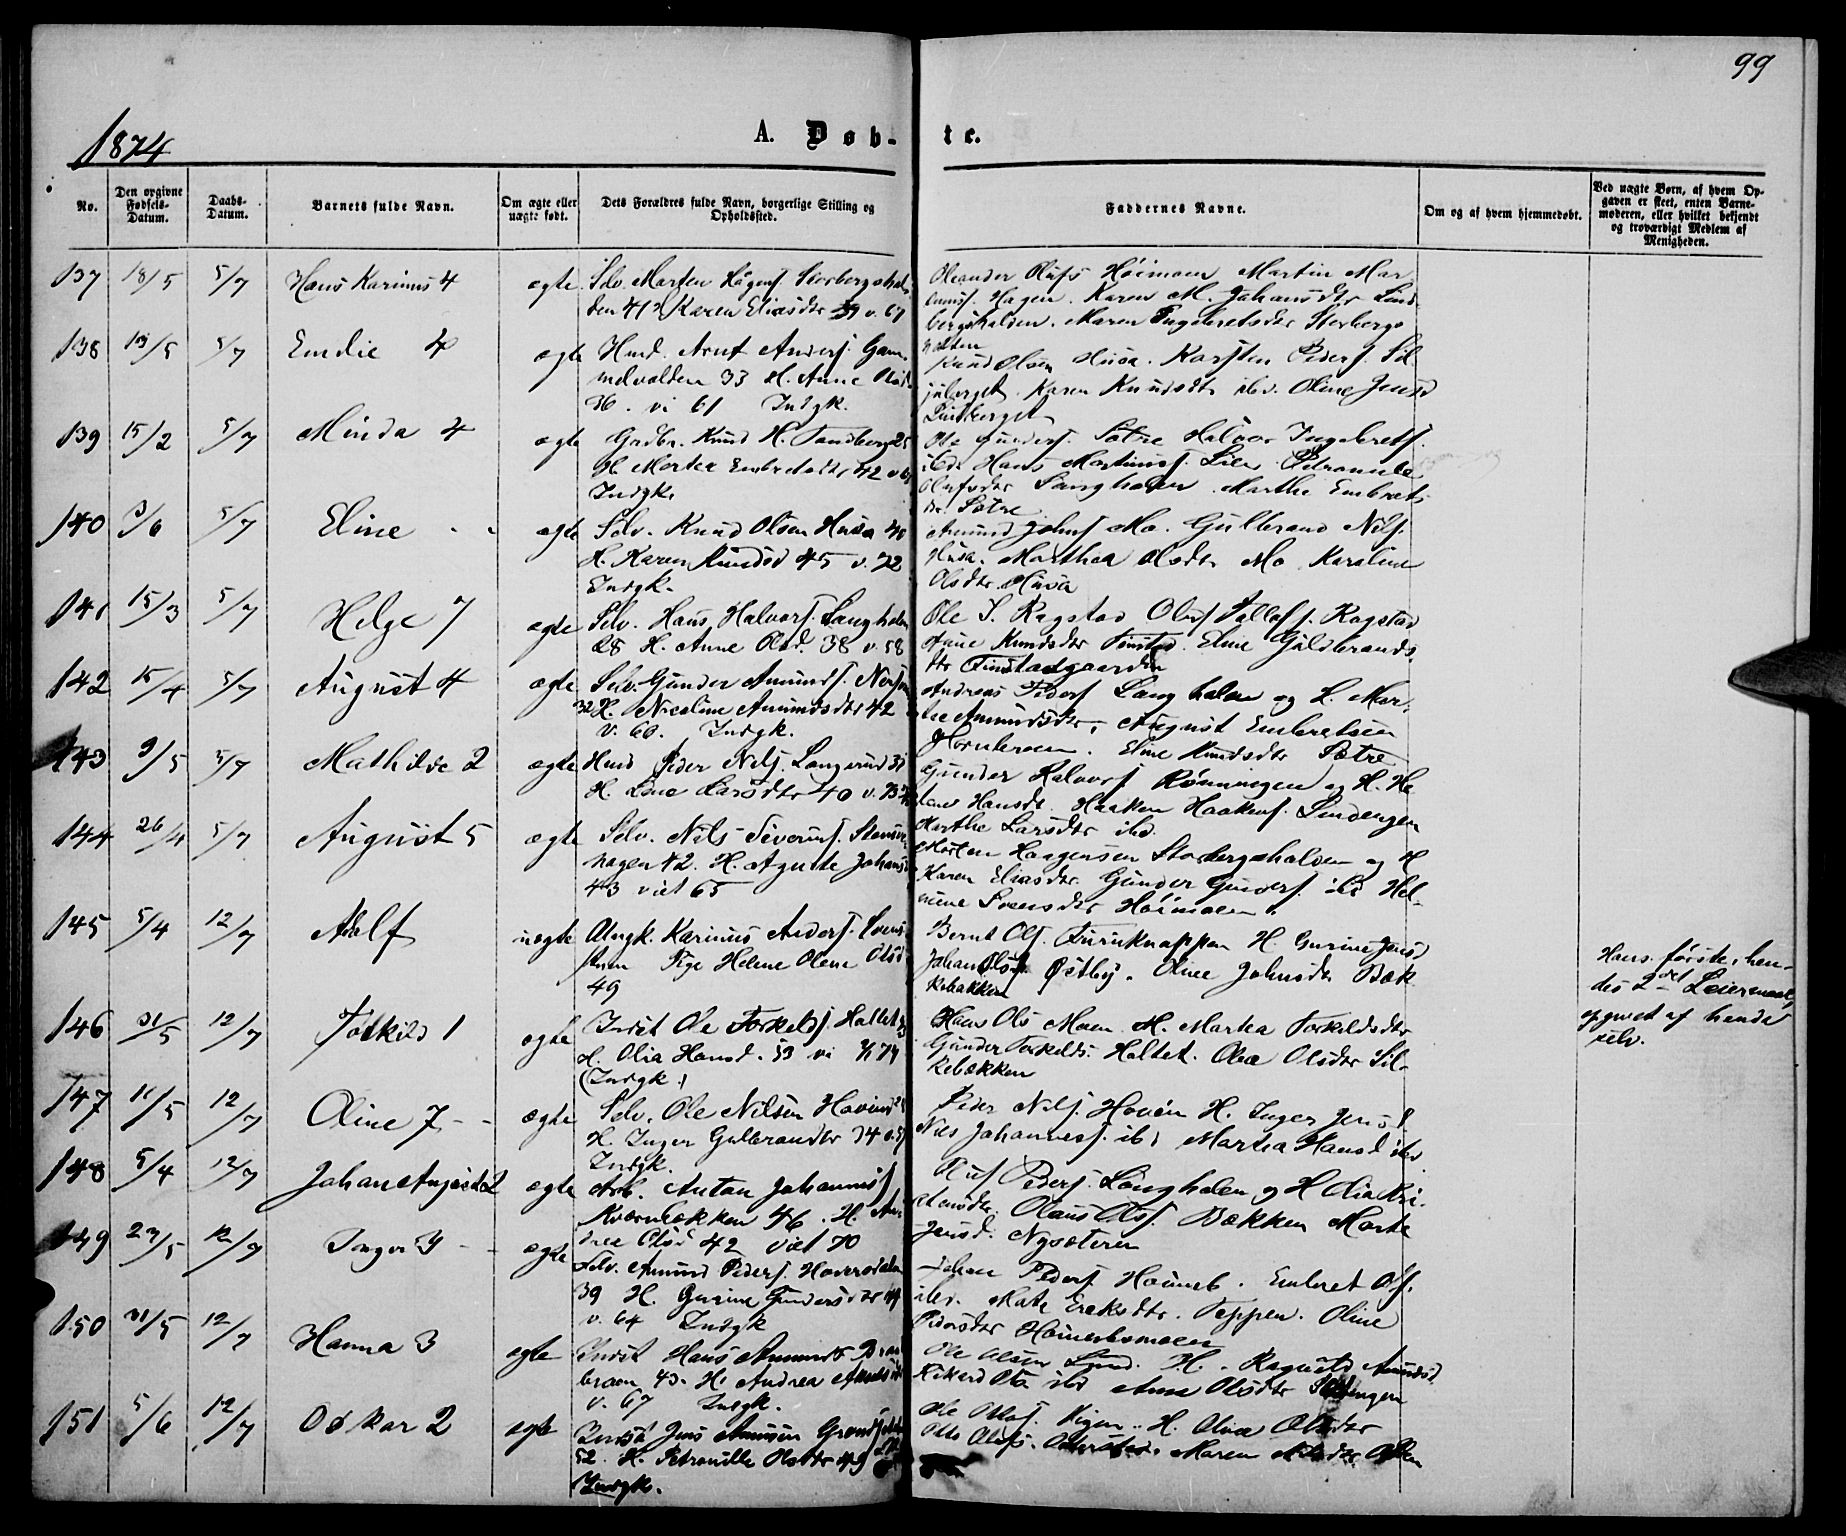 99
1874
A. Døb-
te.
No.
Den opgivne Fødsels-Datum.
Daabs-Datum.
Barnets fulde Navn.
Om ægte eller uægte født.
Dets Forældres fulde Navn, borgerlige Stilling og Opholdssted.
Faddernes Navne.
Om og af hvem hjemmedøbt.
Ved uægte Børn, af hvem Opgaven er skeet, enten Barnemoderen, eller hvilket bekjendt og troværdigt Medlem af Menigheden.
137 18/5 5/7 Hans Karinius 4 ægte
Selv. Morten Hågens. Storbergshol-
den 41 Karen Eliasdtr 39 v. 67
Oleander Olufs Høimoen Martin Mar
Hagen. Karen M. Johansdtr Lind
bergshalden. Maren Ingebretsdtr Storbergs
138 13/5 5/7 Emilie 4 ægte
Husd. Arnt Anders. Gam-
melvolden 33 H. Anne Olsd.
36. vi 61 Indgk.
Knud Olsen Husa. Karsten Peders. Sil
juberget. Karen Knudsdtr ibd. Oline Jensd
Lindberget
139 15/2 5/7 Minda 4 ægte
Grdbr. Knud H. Sandberg 25
H. Marthea Embretsdtr 42 v 67
Indgk.
Ole Gunders. Sætre Halvor Ingebrets.
ibd. Hans Martinius. Lien Petronille
Olufsdtr Langholen Marthe Embrets
dtr. Sætre
140 3/6 5/7 Eline - - ægte
Selv. Knud Olsen Husa 40
H. Karen Amundsd 45 v. 72
Indgk.
Amund Johns Mo. Gulbrand Nils.
Husa. Marthea Olsdtr Mo Karoline
Olsdtr Husa
141 15/3 5/7 Helge 7 ægte
Selv. Hans Halvors. Langholen
28 H. Anne Olsd. 38 v. 58
Ole S. Ragstad Oluf Tollefs. Ragstad
Anne Knudsdtr Finstad. Eline Guldbrands
dtr Finstadgaarden
142 15/4 5/7 August 4 ægte
Selv. Gunder Amunds.
32 H. Nicoline Amundsdtr 42
v. 66. Indgk.
Andreas Peders Langholen og H. Mar-
the Amundsdtr, August Embretsen
Eline Knudsdtr Sætre
143 9/5 5/7 Mathilde 2 ægte
Husd Peder Nils. Langerud 31
H. Line Larsdtr 40 v. 73
Gunder Halvors Rønningen og H. He
lene Hansdt. Haaken Haakens. Lindengen
Marthe Larsdtr ibd.
144 26/4 5/7 August 5 ægte
Selv. Nils Siverins.
hagen 42. H. Agnethe Johansd
43 viet 65
Morten Haagensen Storbergshalden og H
Karen Eliasdtr. Gunder Gunders. ibd Hel-
mine Svensdtr Høimoen.
145 5/4 12/7 Adolf uægte
Ungk. Karinius Anders.
Pige Helene Olene Olsd
49
Bernt Ols. Furuknappen H. Gurine Jensd
Johan Ols Østby. Oline Johnsdtr Bæk
kebakken
Hans første, hen-
des 2det Leiermaal,
opgivet af hende
selv.
146 31/5 12/7 Torkild 1 ægte
Indst Ole Torkelds. Haltet
H. Olia Hansd. 53 vi 74
(Indgk.)
Hans Ols Moen H. Marthea Torkildsdtr
Gunder Torkilds. Haltet. Olea Olsdtr Sil-
kebækken
147 11/5 12/7 Oline 7 - - ægte
Selv. Ole Nilsen Hovind
H. Inger Gulbrandtr 34 v. 57
Indgk.
Peder Nils. Hovin H. Inger Jensd.
Nils Johanness. ibd Marthea Hansd ibd
148 5/4 12/7 Johan August 2 ægte
Arb. Anton Johannes
Kværnbækken 46. H. An-
drea Olsd 42 viet 70
Oluf Peders. Langholen og H Olia Kri-
stensdtr. Olaus Ols. Bækken Marthe
Jensd. Nysæteren
149 23/5 12/7 Inger 3 - - ægte
Selv. Amund Peders. Hoversdalen
39 H. Gurine Gundersdtr 44
v. 64 Indgk
Johan Peders Houmeb. Embret Ols.
ibd. Mathe Eriksdtr. Teppen. Oline
Pedersdtr
150 31/5 12/7 Hanna 3 ægte
Indst Hans Amunds
braan 43. H. Andrea
v. 67 Indgk.
Ole Olsen Lund. H. Ragnild Amundsd
Rikard Ols ibd Anne Olsdtr
151 5/6 12/7 Oskar 2 ægte
Indst Jens Amunsen
52. H. Petronille Olsdtr 49
Indgk.
Ole Olss. H. Olivia Olsdtr
Otto Olufs. Maren Nilsdtr